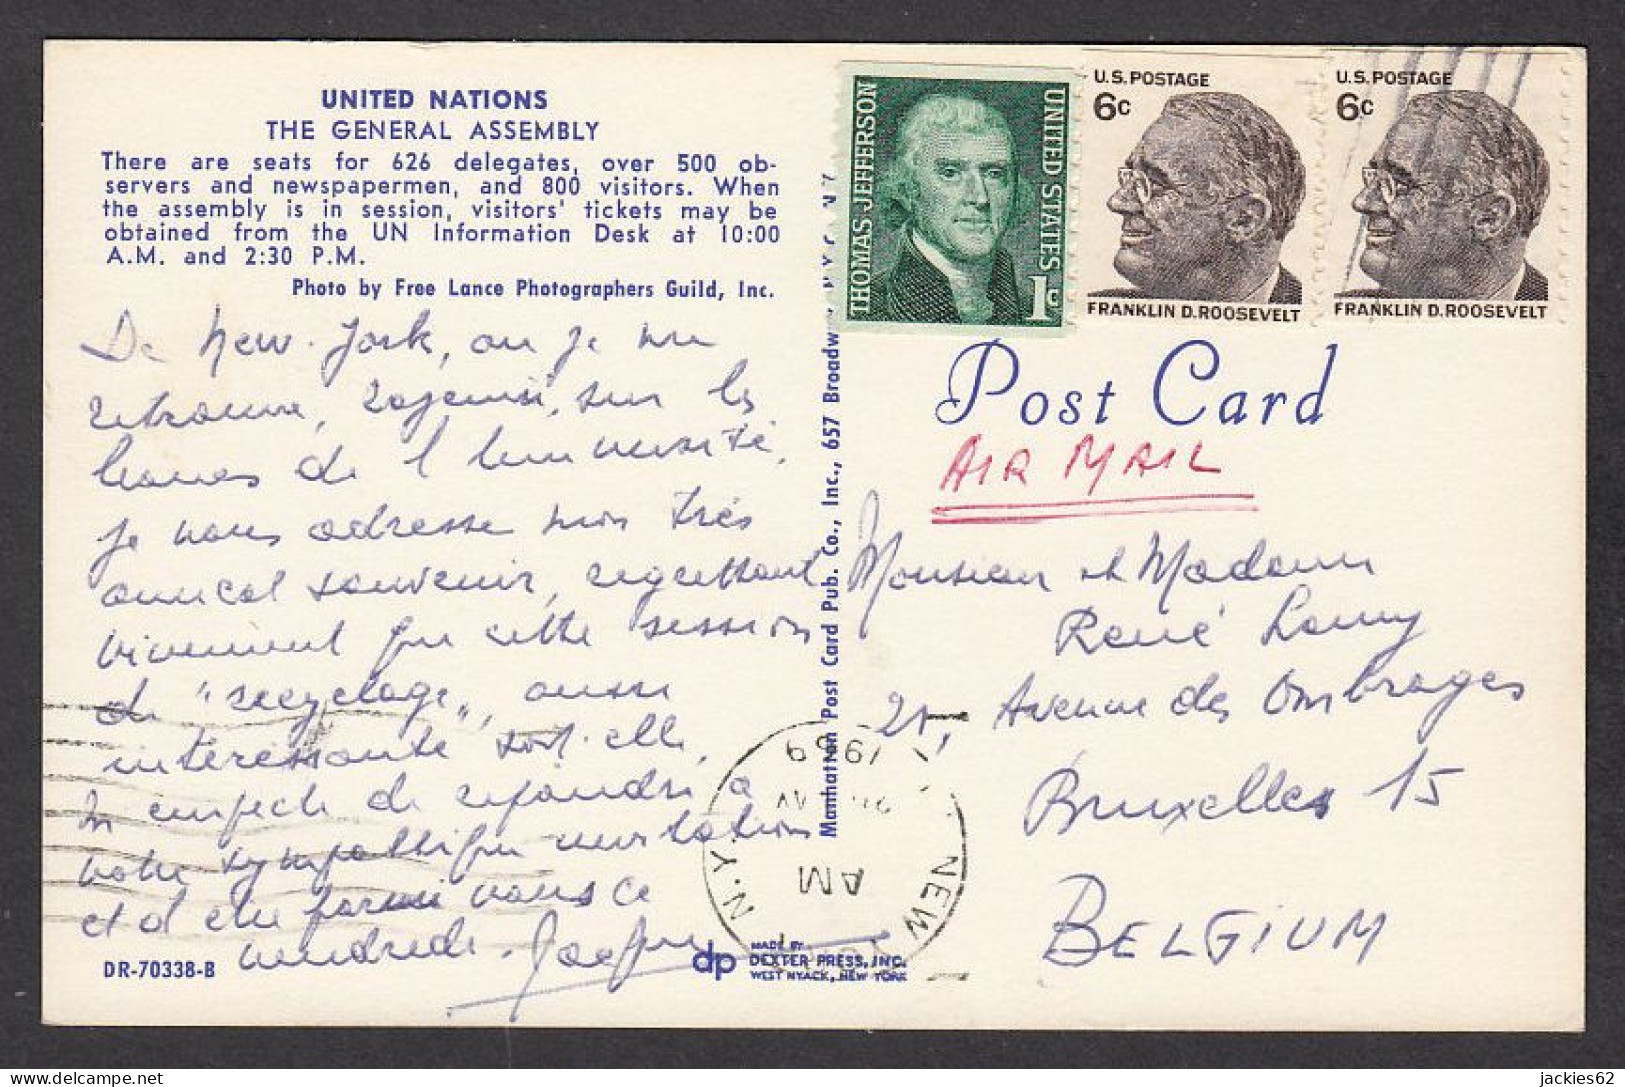 UNITED NATIONS
THE GENERAL ASSEMBLY
There are seats for 626 delegates, over 500 ob-
servers and newspapermen, and 800 visitors. When
the assembly is in session, visitors' tickets may be
obtained from the UN Information Desk at 10:00
A.M. and 2:30 P.M.
Photo by Free Lance Photographers Guild, Inc.
De New-York, où je me
retrouve, rajeuni, sur les
bancs de l'université,
je vous adresse mon très
amical souvenir, regrettant
vivement que cette session
de "recyclage", aussi
intéressante soit-elle,
m'empêche de répondre à
votre sympathique invitation
et d'être parmi vous ce
vendredi.
DR-70338-B
dp MADE BY
DEXTER PRESS, INC.
WEST NYACK, NEW YORK
Manhattan Post Card Pub. Co., Inc., 657 Broadway
THOMAS JEFFERSON
UNITED STATES
1c
U.S. POSTAGE
6c
FRANKLIN D. ROOSEVELT
U.S. POSTAGE
6c
FRANKLIN D. ROOSEVELT
Post Card
AIR MAIL
Monsieur et Madame
René Lamy
21, Avenue des Ombrages
Bruxelles 15
BELGIUM
NEW
N.Y.
AM
1969
jackies62